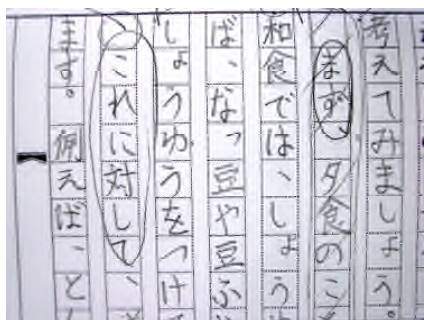 考えてみましょう。
まず、夕食のこ
和食では、しょう
ば、なっ豆や豆ふ
しょうゆうをつけ
これに対して、
ます。例えば、と